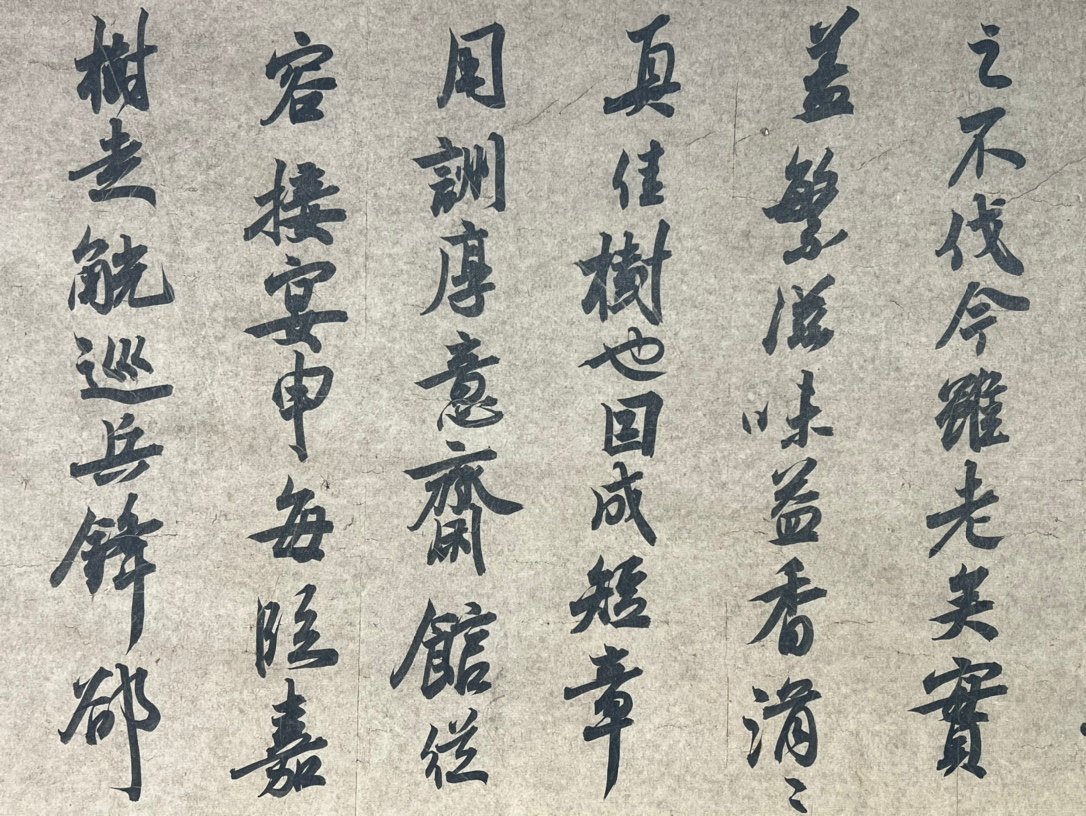 之不伐今雖老矣實
益繁滋味益香滑〻
真佳樹也因成短章
用訓厚意齋館從
容接宴申每臨嘉
樹走觥巡兵鋒郤